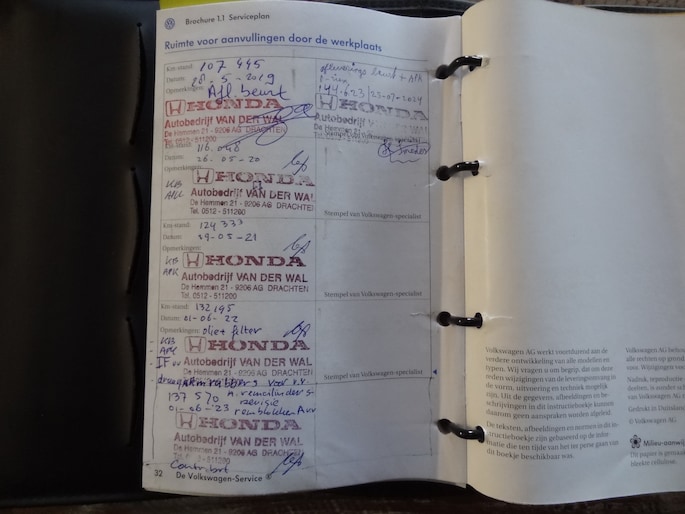 Brochure 1.1 Serviceplan
Ruimte voor aanvullingen door de werkplaats
Km-stand: 107 445
Datum: 28-5-2019
Opmerkingen: Afl. beurt
HONDA
Autobedrijf VAN DER WAL
De Hemmen 21 - 9206 AG DRACHTEN
Tel. 0512 - 511200
afleverings beurt + APK
144.623 | 23-07-2024
HONDA
Stempel van Volkswagen-specialist
Km-stand: 116.048
Datum: 26-05-20
KB
HONDA
Autobedrijf VAN DER WAL
De Hemmen 21 - 9206 AG DRACHTEN
Tel. 0512 - 511200
Stempel van Volkswagen-specialist
Km-stand: 124 333
Datum: 29-05-21
Opmerkingen:
KB
APK
HONDA
Autobedrijf VAN DER WAL
De Hemmen 21 - 9206 AG DRACHTEN
Tel. 0512 - 511200
Stempel van Volkswagen-specialist
Km-stand: 132 195
Datum: 01-06-22
Opmerkingen: olie + filter
- KB
- APK
HONDA
Autobedrijf VAN DER WAL
De Hemmen 21 - 9206 AG DRACHTEN
Stempel van Volkswagen-specialist
137 570 A. remcilinders
revisie
01-06-'23 remblokken A+V
HONDA
Autobedrijf VAN DER WAL
De Hemmen 21 - 9206 AG DRACHTEN
32 De Volkswagen-Service
Volkswagen AG werkt voortdurend aan de
verdere ontwikkeling van alle modellen en
typen. Wij vragen u om begrip, dat om deze
reden wijzigingen van de leveringsomvang in
de vorm, uitvoering en techniek mogelijk
zijn. Uit de gegevens, afbeeldingen en be-
schrijvingen in dit instructieboekje kunnen
daarom geen aanspraken worden afgeleid.
De teksten, afbeeldingen en normen in dit in-
structieboekje zijn gebaseerd op de infor-
matie die ten tijde van het ter perse gaan van
dit boekje beschikbaar was.
Volkswagen AG
alle rechten op
Wijzigingen
Nadruk,
Gedrukt in Duitsland
© Volkswagen AG
Milieu-aanwij
Dit papier is
bleekte cellulose.